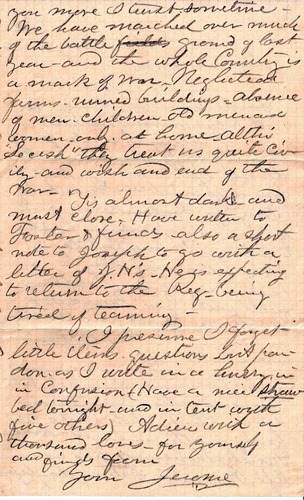 you more I trust sometime -
We have marched over much
of the battle fields ground of last
year - and the whole Country is
a mark of war. Neglected
farms. ruined buildings = absence
of men. Children old men and
women only at home. Altho'
"Secish" they treat us quite civ-
ily - and wish and end of the
War -
Tis almost dark and
must close. Have written to
Foster & also a short
note to Joseph to go with a
letter of J.N's. He is expecting
to return to the Reg - being
tired of teaming -
I presume I forget
little questions but par-
don. as I write in a hurry, &
in Confusion (Have a nice straw
bed tonight - and in tent with
five others) Adieu with a
thousand loves - for yourself
and from
Jerome